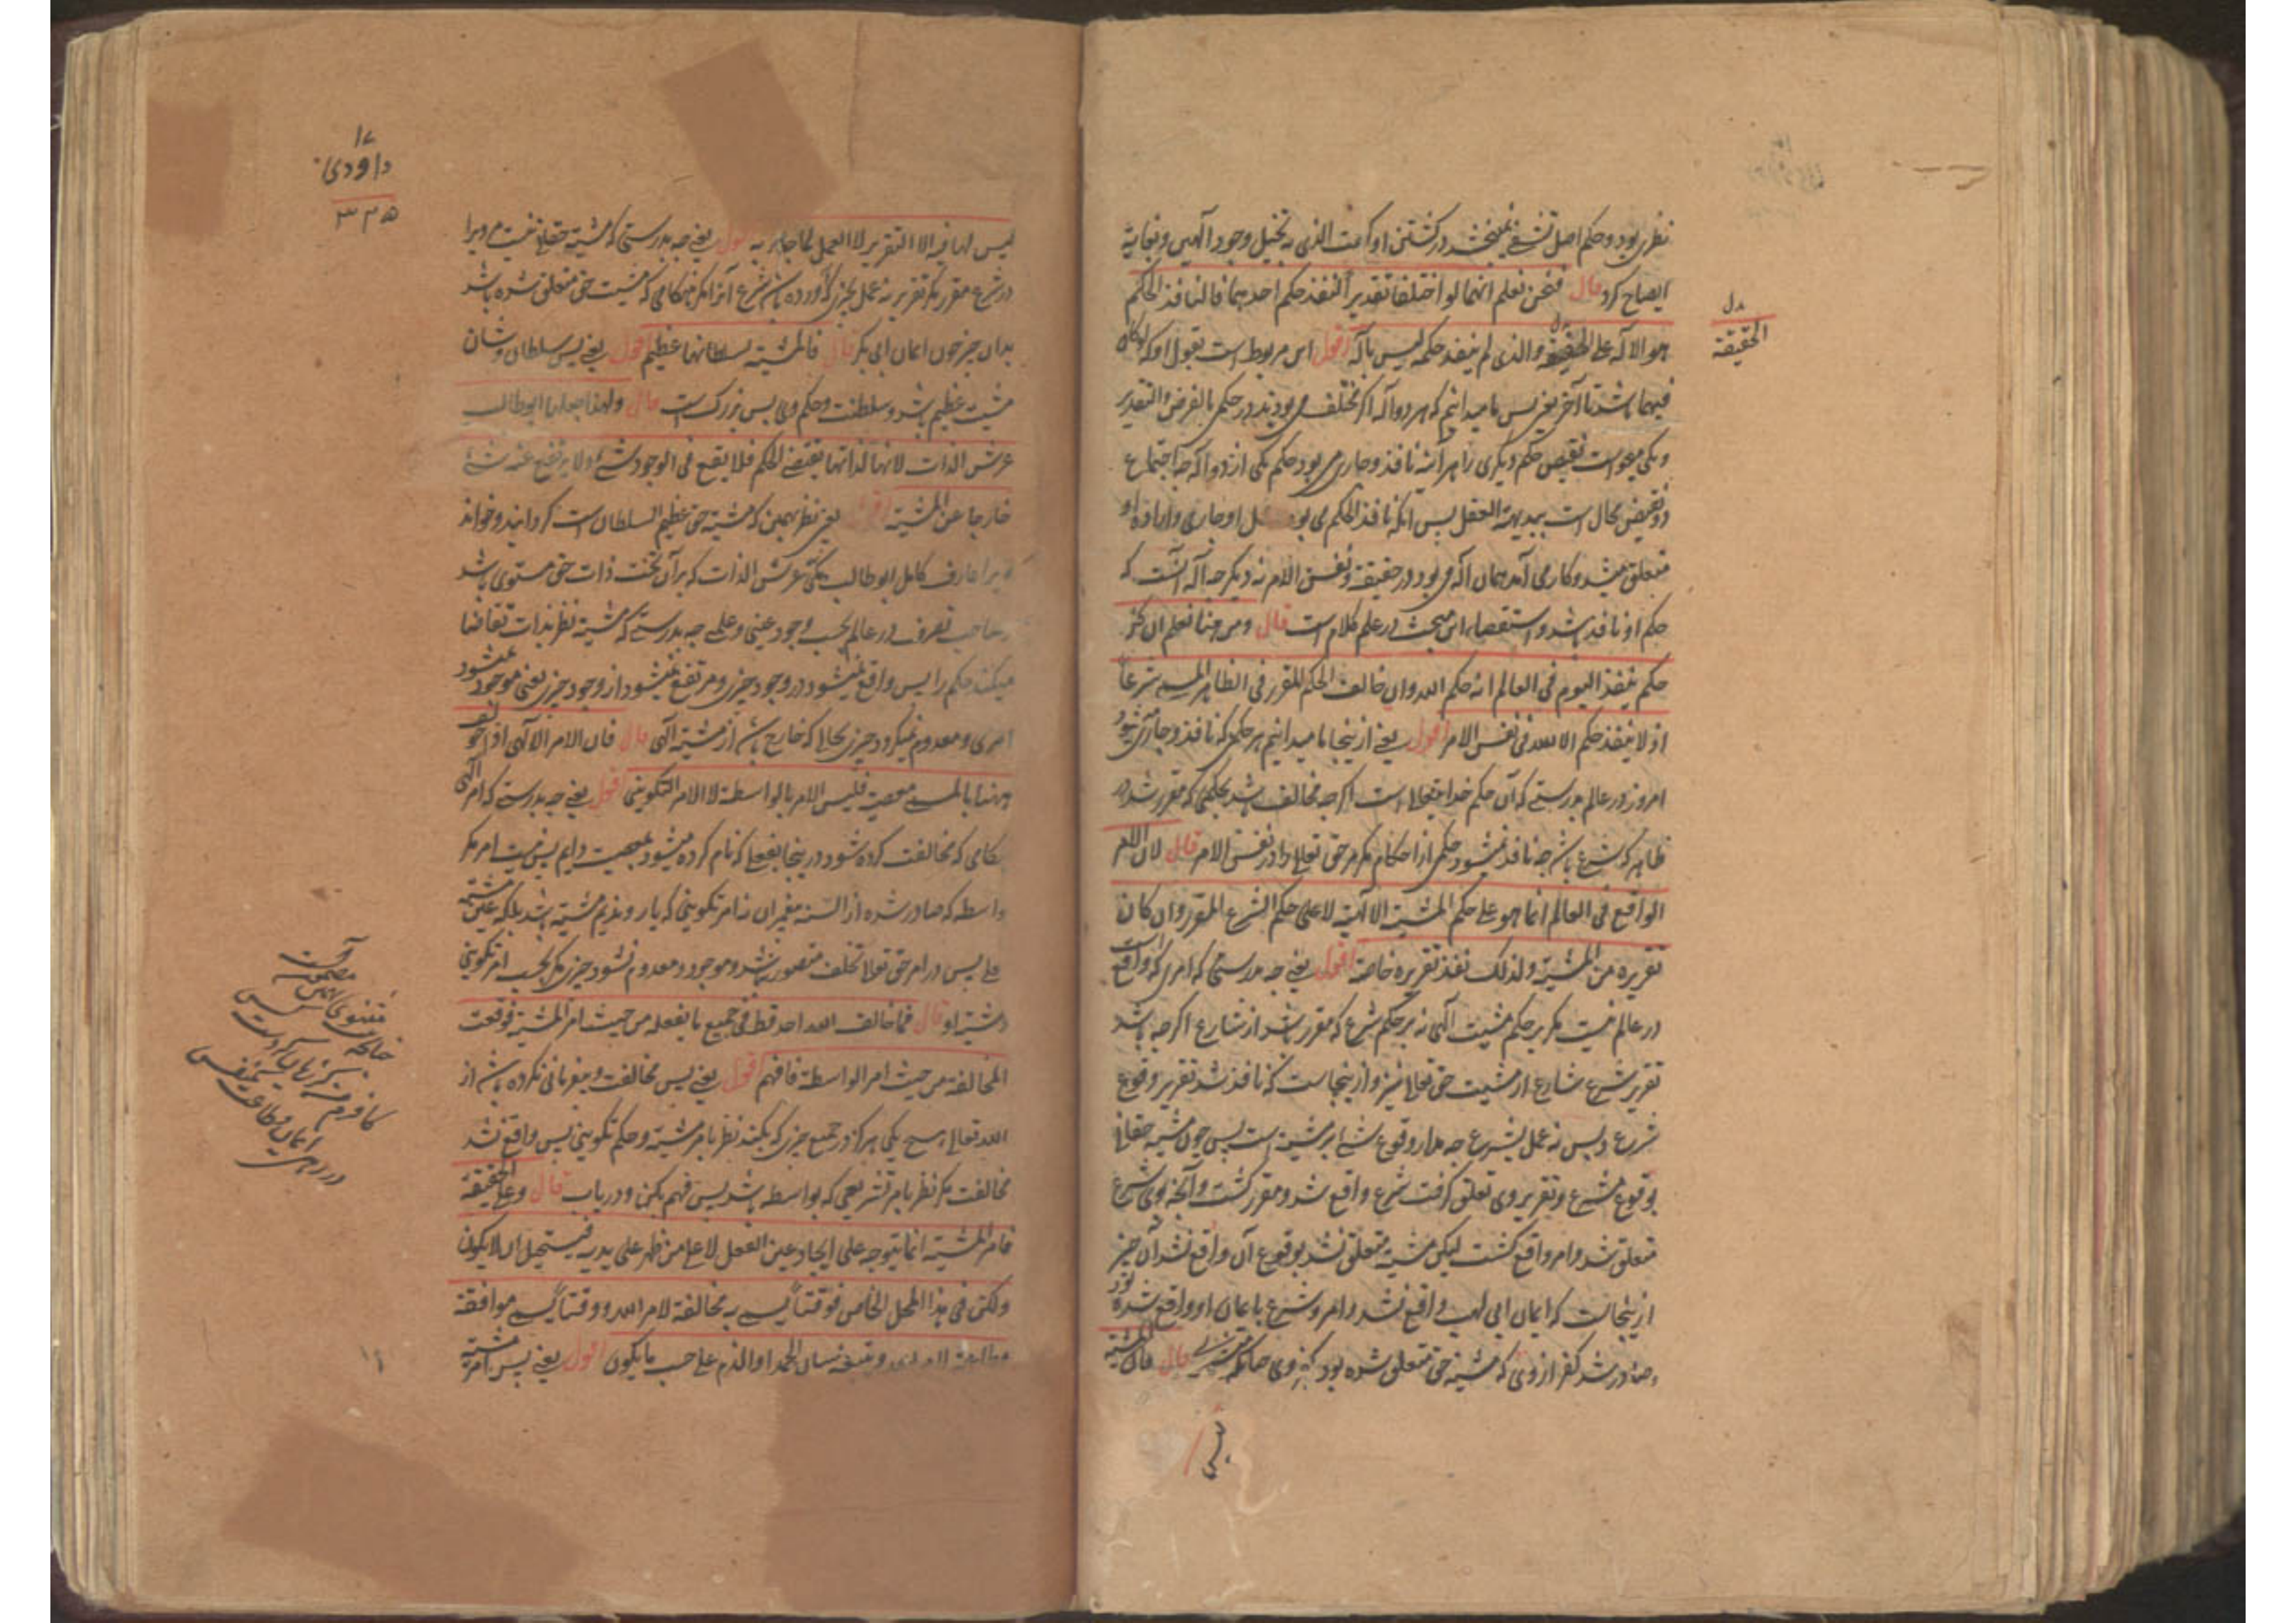 نظری بود و حکم اصل تشفی نمی‌بخشد در کشتن او کمت الذی به تخیل وجود الهین و نهایة
ایضاح کرد قال فنحن نعلم انهما لو اختلفا تقدیرا لنفذ حکم احدهما فالنافذ الحکم
هو الاله علی الحقیقة والذی لم ینفذ حکمه لیس باله اقول این مربوط است بقول او که لو کان
فیهما باشد تا آخر یعنی پس ما میدانیم که هر دو آله اگر مختلف می بودند در حکم بالفرض والتقدیر
و یکی میخواست نقیض حکم دیگری را هر آینه نافذ و جاری می بود حکم یکی ازین دو اله چه اجتماع
دو نقیض محال است ببدیهة العقل پس آنکه نافذ الحکم می بود او جاری و اراده او
متعلق میشد و کار می آمد همان اله می بود در حقیقة و نفس الامر نه دیگر چه اله آنست که
حکم او نافذ باشد و استقصاء این مبحث در علم کلام است قال ومن هنا نعلم ان کل
حکم ینفذ الیوم فی العالم انه حکم الله وان خالف الحکم المقرر فی الظاهر المسمی شرعا
اذ لا ینفذ حکم الا لله فی نفس الامر اقول یعنی از اینجا ما میدانیم هر حکمی که نافذ و جاری شود
امروز در عالم بدرستی که آن حکم خداتعالی است اگرچه مخالف باشد بحکمی که مقرر شد در
ظاهر که شرع باشد چه نافذ نمیشود حکمی از احکام مگر مر حق تعالی را در نفس الامر قال لان الامر
الواقع فی العالم انما هو علی حکم المشیة الالهیة لا علی حکم الشرع المقرر وان کان
تقریره من المشیة ولذلک نفذ تقریره خاصة اقول یعنی چه بدرستی که امری که واقع است
در عالم نیست مگر بر حکم مشیت الهی نه بر حکم شرع که مقرر باشد از شارع اگرچه باشد
تقریر شرع شارع از مشیت حق تعالی نیز و ازینجاست که نافذ شد تقریر وقوع
شرع و بس نه عمل بشرع چه مدار وقوع شی بر مشیت است پس چون مشیة حقتعالی
بوقوع شرع و تقریر وی تعلق گرفت شرع واقع شد و مقرر گشت و آنچه بوی شرع
متعلق شد و امر واقع گشت لیکن مشیة متعلق نشد بوقوع آن واقع نشد آن چیز
ازینجاست که ایمان ابی لهب واقع نشد و امر و شرع بایمان او واقع شده بود
و صادر شد کفر از وی که مشیة حق متعلق شده بود بکفر وی قال فان المشیة
بدل
الحقیقة
لیس
۱۷
داودی
۳۲۵
لیس لها فیه الا التقریر لا العمل بما جاء به اقول یعنی چه بدرستی که مشیة حقتعالی نیست مر ویرا
در شرع مقرر مگر تقریر نه عمل بچیزی که آورده باشد شرع آنرا مگر هنگامی که مشیت حق متعلق شده باشد
بدان چیز چون ایمان ابی بکر قال فالمشیة سلطانها عظیم اقول یعنی پس سلطان و شان
مشیت عظیم باشد و سلطنت و حکم وی بس بزرگ است قال ولهذا جعلها ابوطالب
عرش الذات لانها لذاتها یقتضی الحکم فلا یقع فی الوجود شیء ولا یرتفع عنه شیء
خارجا عن المشیة اقول یعنی نظر بهمین که مشیة حق عظیم السلطان است گردانید و خواند
ویرا عارف کامل ابوطالب مکی عرش الذات که بر آن تخت ذات حق مستوی باشد
صاحب تصرف در عالم بحسب وجود عینی و علمی چه بدرستی که مشیة نظر بذات تقاضا
میکند حکم را پس واقع نمیشود در وجود چیزی و مرتفع نمیشود از وجود چیزی یعنی موجود نمیشود
امری و معدوم نمیگردد چیزی بحالی که خارج باشد از مشیة الهی قال فان الامر الالهی اذا خولف
ههنا بالمسمی معصیة فلیس الامر بالواسطة لا الامر التکوینی اقول یعنی چه بدرستی که امر الهی
هنگامی که مخالفت کرده شود در اینجا بفعلی که نام کرده میشود بمعصیت دایم پس نیست امر مگر
واسطه که صادر شده از السنه پیغمبران نه امر تکوینی که یار و ندیم مشیة باشد بلکه عین مشیة
پس در امر حق تعالی تخلف متصور نباشد و موجود و معدوم نشود چیزی مگر بحسب امر تکوینی
و مشیة او قال فما خالف الله احد قط فی جمیع ما یفعله من حیث امر المشیة فوقعت
المخالفة من حیث امر الواسطة فافهم اقول یعنی پس مخالفت و بی‌فرمانی نکرده باشد از
الله تعالی هیچ یکی هرگز در جمیع چیزی که بکند نظر بامر مشیة و حکم تکوینی پس واقع نشد
مخالفت مگر نظر بامر تشریعی که بواسطه باشد پس فهم بکن و دریاب قال وعلی الحقیقة
فامر المشیة انما یتوجه علی ایجاد عین الفعل لا علی من ظهر علی یدیه فیستحیل ان لا یکون
ولکن فی هذا المحل الخاص فوقتا یسمی به مخالفة لامر الله ووقتا یسمی موافقة
وطاعة لامر الله ویتبعه لسان الحمد او الذم علی حسب ما یکون اقول یعنی پس امر مشیة